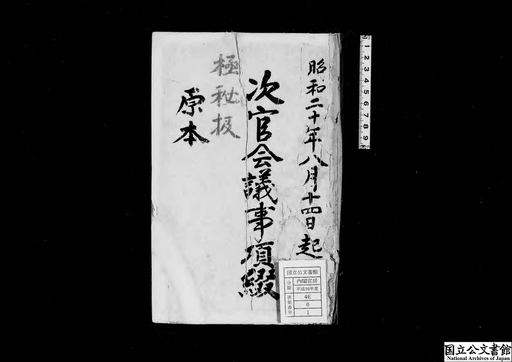 昭和二十年八月十四日起
次官会議事項綴
極秘扱
原本
国立公文書館
内閣官房
平成16年度
46
6
1
1 2 3 4 5 6 7 8 9
国立公文書館
National Archives of Japan